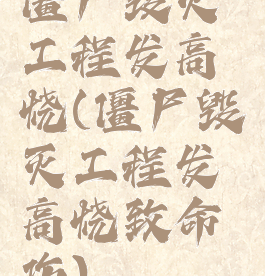 僵尸毁灭
工程发高
烧(僵尸毁
灭工程发
高烧致命